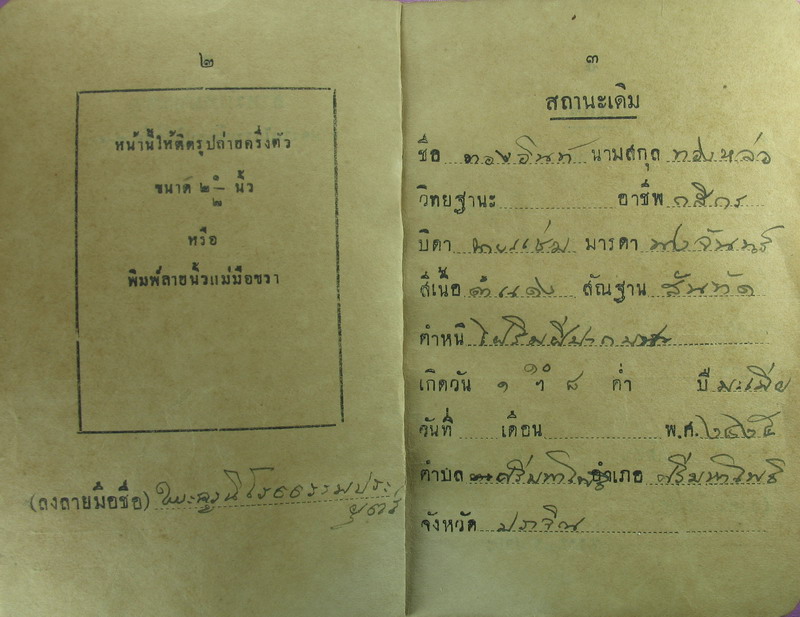 ๒
หน้านี้ให้ติดรูปถ่ายครึ่งตัว
ขนาด ๒ ๑/๒ นิ้ว
หรือ
พิมพ์ลายนิ้วแม่มือขวา
(ลงลายมือชื่อ)
๓
สถานะเดิม
ชื่อ ทองอินท์ นามสกุล ทองหล่อ
วิทยฐานะ อาชีพ กสิกร
บิดา นายแช่ม มารดา นางจันทร์
สีเนื้อ ดำแดง สัณฐาน สันทัด
ตำหนิ
เกิดวัน ๑ ฯ ๘ ค่ำ ปี มะเมีย
วันที่ เดือน พ.ศ. ๒๔๒๕
ตำบล ศรีมหาโพธิ อำเภอ ศรีมหาโพธิ
จังหวัด ปราจีน